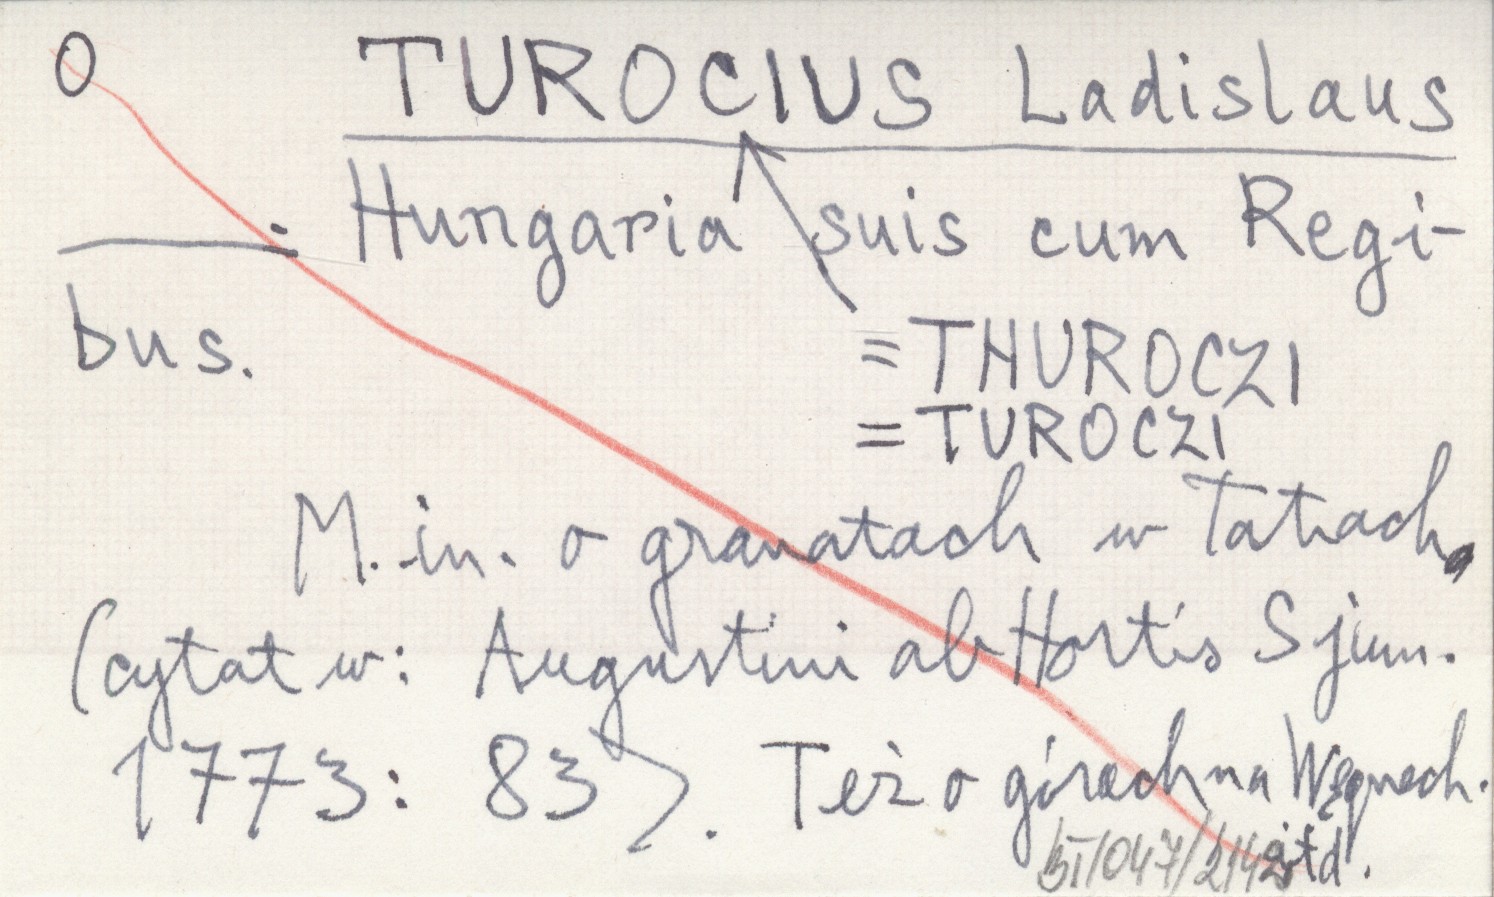 O TUROCIUS Ladislaus
Hungaria suis cum Regi-
bus.
= THUROCZI
= TUROCZI
M. in. o granatach w Tatrach,
(cytat w: Augustini ab Hortis S jun.
1773: 83). Też o górach na Węgrzech.
itd.